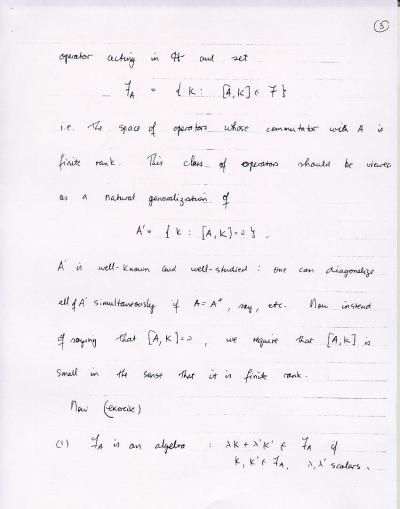 (5)
operator acting in H and set
F_A = { K : [A,K] ∈ F }
i.e. the space of operators whose commutator with A is
finite rank. This class of operators should be viewed
as a natural generalization of
A' = { K : [A,K]=0 }.
A' is well-known and well-studied : one can diagonalize
all of A' simultaneously if A = A*, say, etc. Now instead
of saying that [A,K]=0, we require that [A,K] is
small in the sense that it is finite rank.
Now (exercise)
(1) F_A is an algebra : λK+λ'K' ∈ F_A if
K, K' ∈ F_A, λ,λ' scalars.